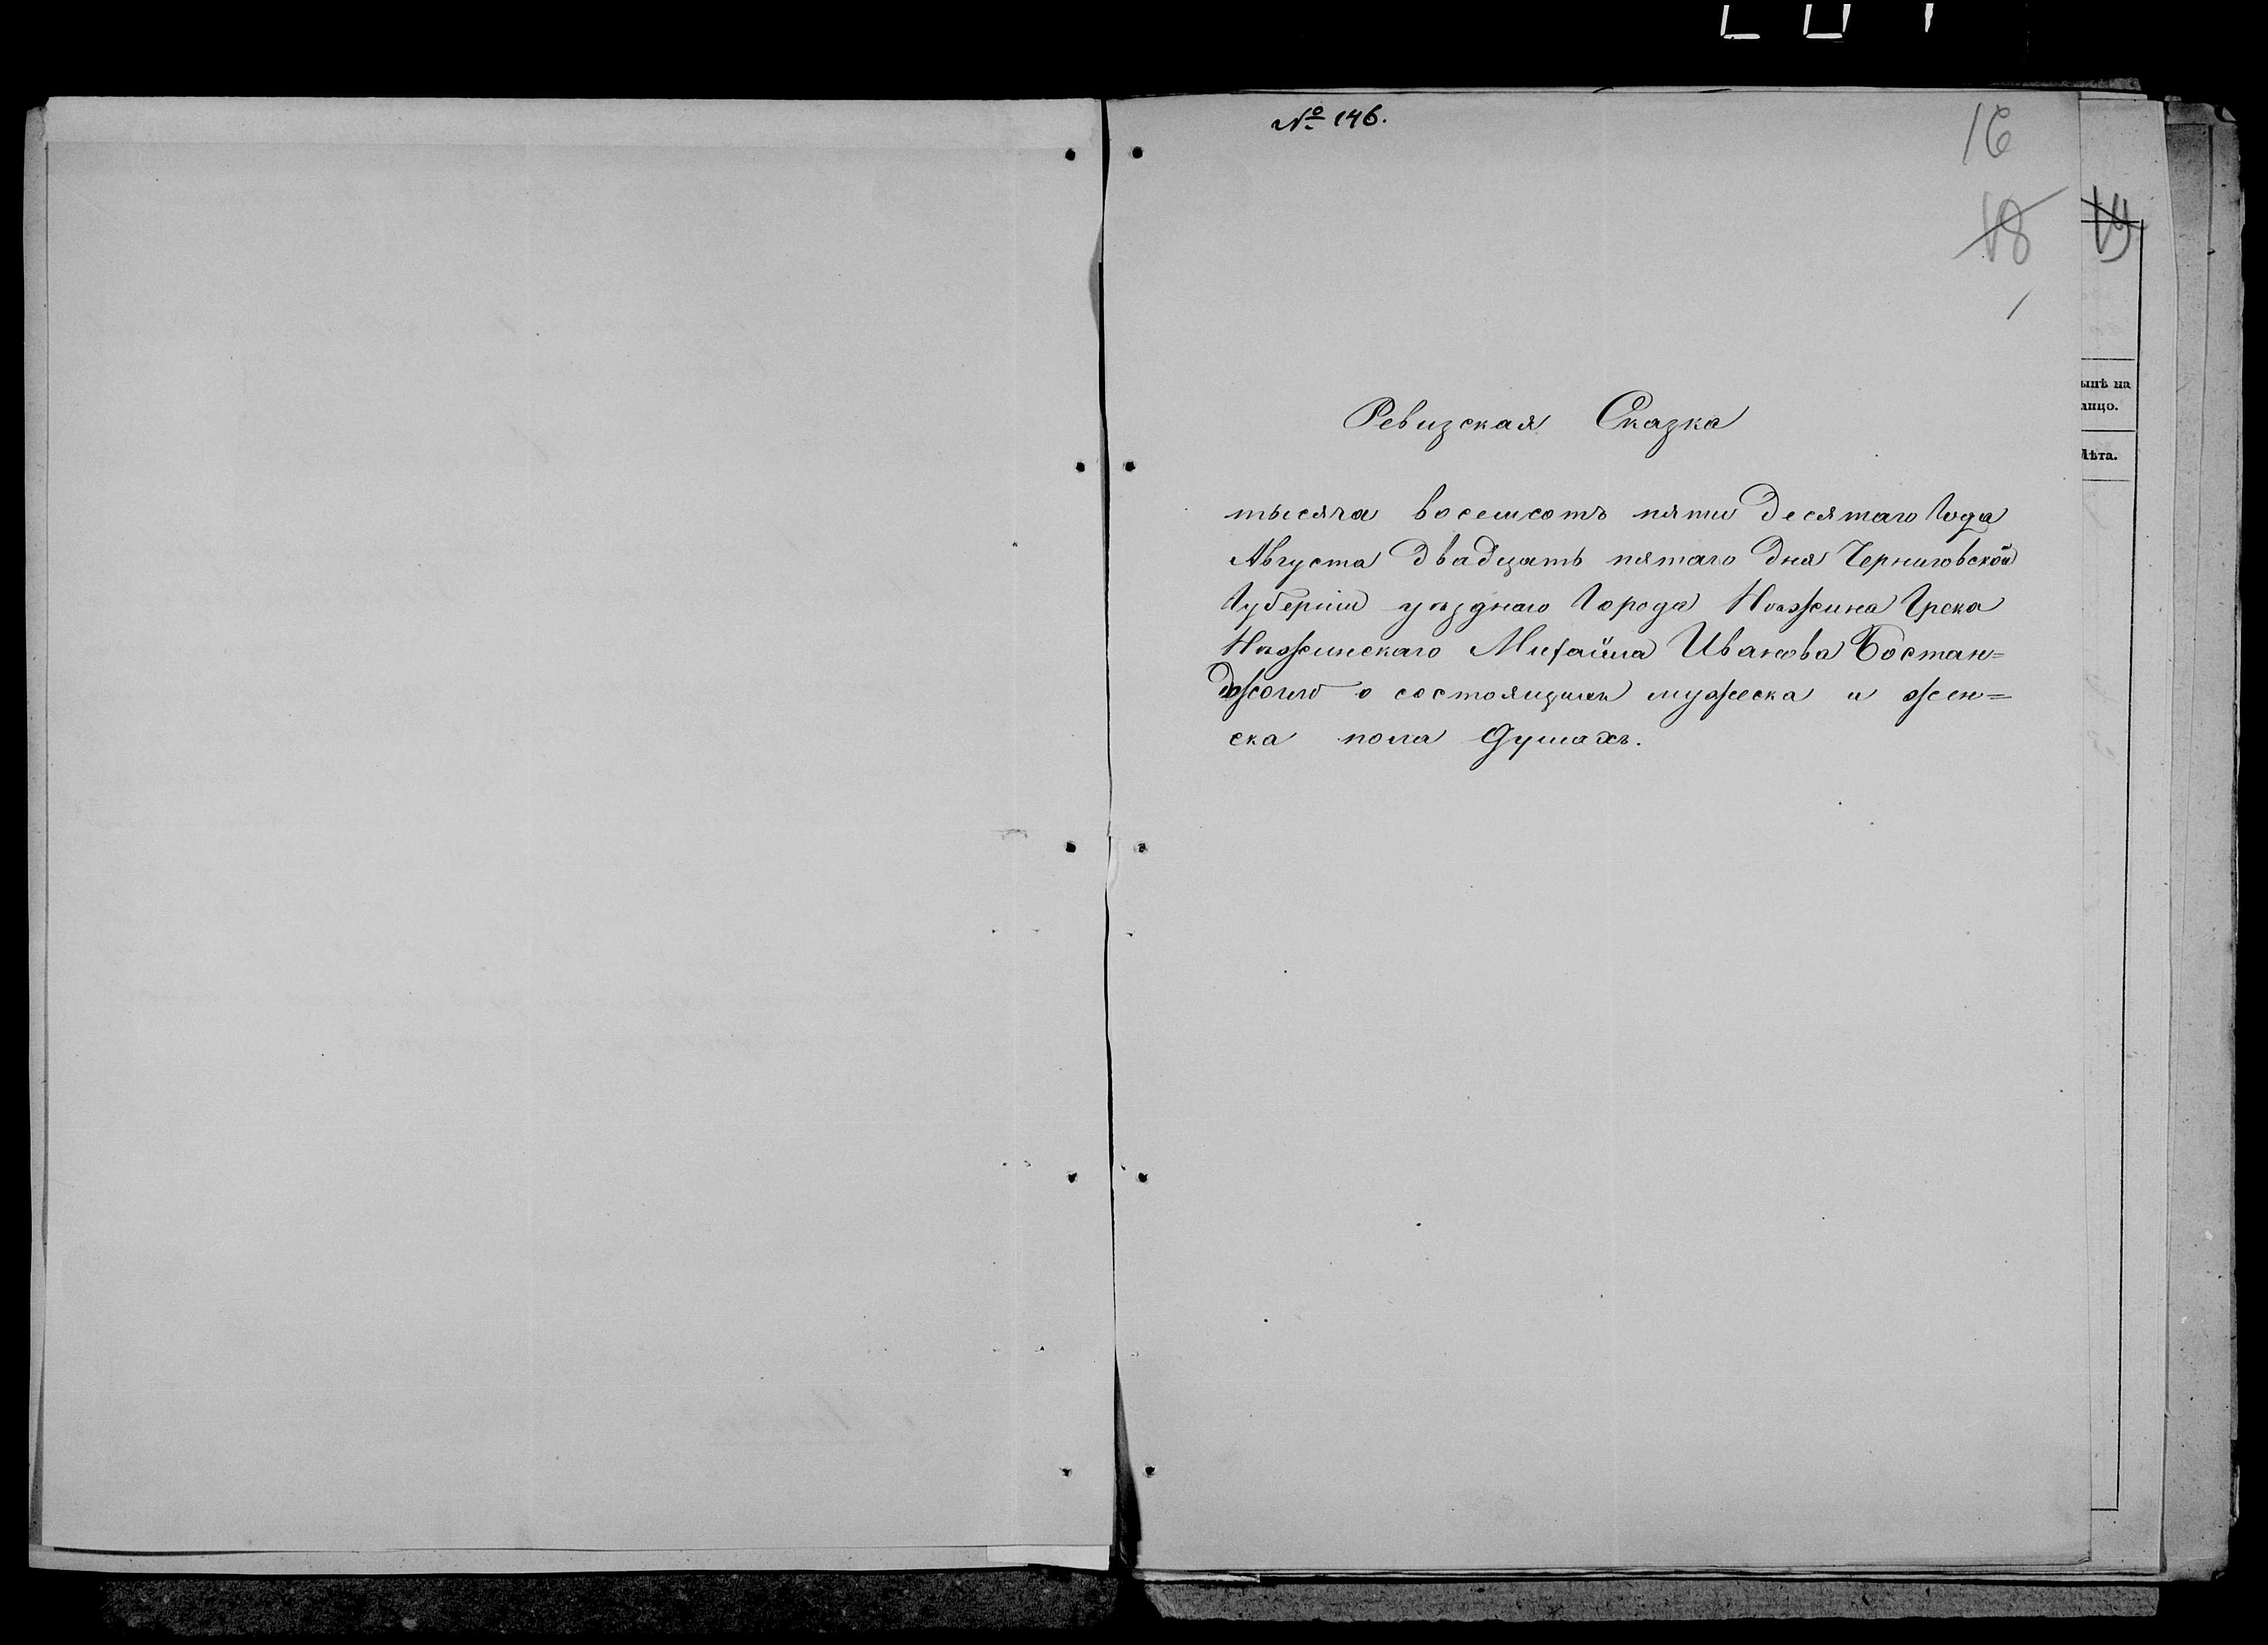 № 146.
16
18
19
Ревизская Сказка
тысяча восемсотъ пяти десятаго Года
Августа двадцать пятаго дня Черниговской
Губерніи уѣзднаго Города Нѣжина Грека
Нѣжинскаго Михайла Иванова Бостан=
джогло о состоящихъ мужеска и жен=
ска пола душахъ.
ынѣ на
лицо.
Лѣта.